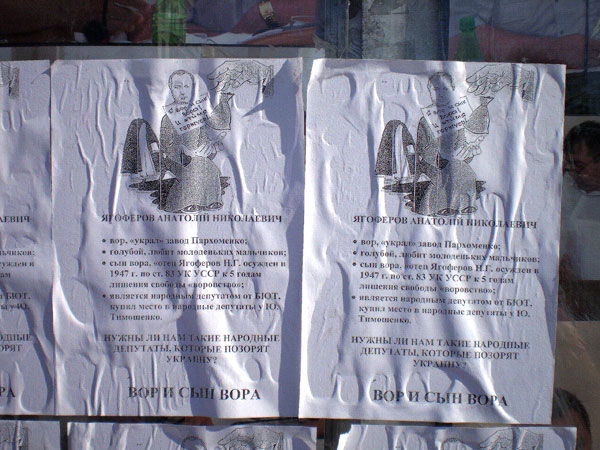 ЯГОФЕРОВ АНАТОЛІЙ НИКОЛАЕВИЧ
• вор, «украл» завод Пархоменко;
• голубой, любит молоденьких мальчиков;
• сын вора, «отец Ягоферов Н.Г. осужден в
1947 г. по ст. 83 УК УССР к 5 годам
лишения свободы «воровство»;
• является народным депутатом от БЮТ,
купил место в народные депутаты у Ю.
Тимошенко.
НУЖНЫ ЛИ НАМ ТАКИЕ НАРОДНЫЕ
ДЕПУТАТЫ, КОТОРЫЕ ПОЗОРЯТ
УКРАИНУ?
ВОР И СЫН ВОРА
ЯГОФЕРОВ АНАТОЛІЙ НИКОЛАЕВИЧ
• вор, «украл» завод Пархоменко;
• голубой, любит молоденьких мальчиков;
• сын вора, «отец Ягоферов Н.Г. осужден в
1947 г. по ст. 83 УК УССР к 5 годам
лишения свободы «воровство»;
• является народным депутатом от БЮТ,
купил место в народные депутаты у Ю.
Тимошенко.
НУЖНЫ ЛИ НАМ ТАКИЕ НАРОДНЫЕ
ДЕПУТАТЫ, КОТОРЫЕ ПОЗОРЯТ
УКРАИНУ?
ВОР И СЫН ВОРА
ЛАЕВИЧ
чиков;
жден в
БЮТ,
у Ю.
РОДНЫЕ
ОРЯТ
ОРА